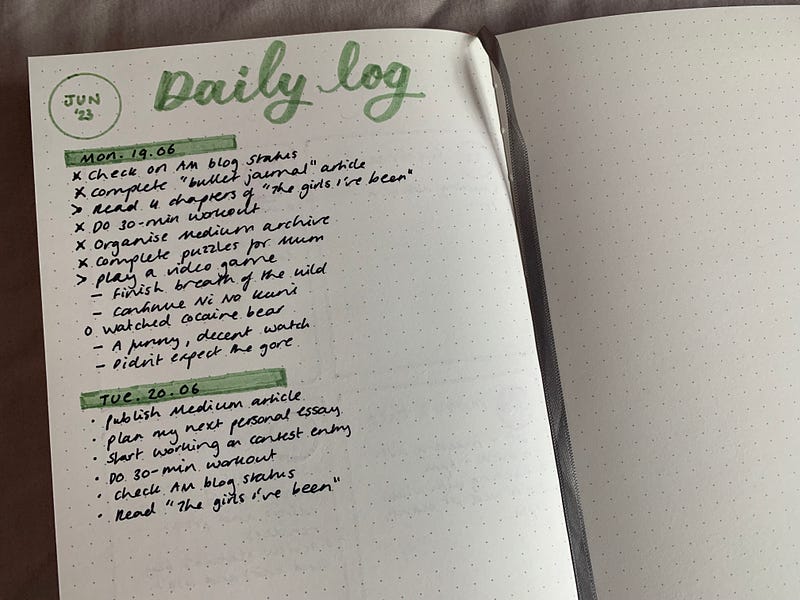 Daily log
JUN
'23
MON. 19.06
x Check on AM blog status
x Complete "bullet journal" article
> Read 4 chapters of "The girls I've been"
x Do 30-min workout
x Organise Medium archive
x Complete puzzles for Mum
> Play a video game
– Finish breath of the wild
– Continue Ni No Kuni
o Watched cocaine bear
– A funny, decent watch
– Didn't expect the gore
TUE. 20.06
• Publish Medium article
• Plan my next personal essay
• Start working on contest entry
• Do 30-min workout
• Check AM blog status
• Read "The girls I've been"